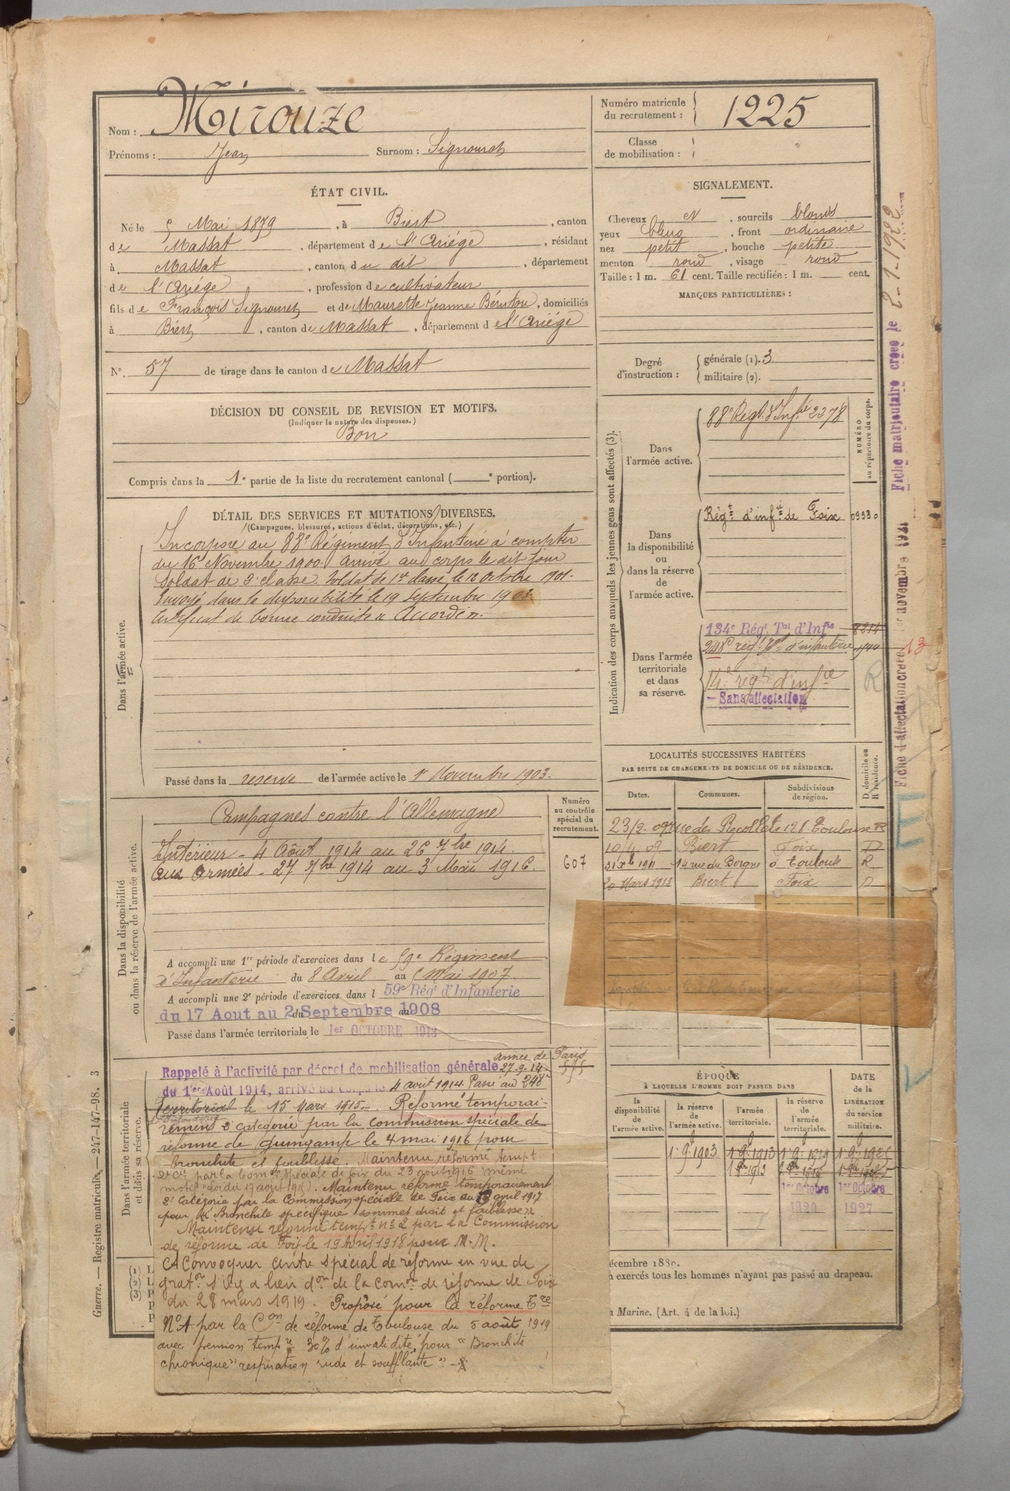 Nom : Mirouze
Prénoms : Jean Surnom : Signouret
Numéro matricule du recrutement : 1225
Classe de mobilisation :
ÉTAT CIVIL.
Né le 5 Mai 1879, à Biert, canton
de Massat, département de l'Ariége, résidant
à Massat, canton du dit, département
de l'Ariége, profession de cultivateur
fils de François Signouret et de Maurette Jeanne, domiciliés
à Biert, canton de Massat, département de l'Ariége
N° 57 de tirage dans le canton de Massat
DÉCISION DU CONSEIL DE REVISION ET MOTIFS.
(Indiquer la nature des dispenses.)
Bon
Compris dans la 1e partie de la liste du recrutement cantonal ( e portion).
SIGNALEMENT.
Cheveux , sourcils blonds
yeux bleus, front ordinaire
nez petit, bouche petite
menton rond, visage rond
Taille : 1 m. 61 cent. Taille rectifiée : 1 m. cent.
MARQUES PARTICULIÈRES :
Degré d'instruction : générale (1). 3
militaire (2).
DÉTAIL DES SERVICES ET MUTATIONS DIVERSES.
(Campagnes, blessures, actions d'éclat, décorations, etc.)
Dans l'armée active.
Incorporé au 88e Régiment d'Infanterie à compter
du 16 Novembre 1900. Arrivé au corps le dit jour
Soldat de 2e classe. Soldat de 1re classe le 12 octobre 1901.
Envoyé dans la disponibilité le 19 septembre 1903.
Certificat de bonne conduite "Accordé".
Passé dans la reserve de l'armée active le 1er Novembre 1903.
Indication des corps auxquels les jeunes gens sont affectés (3).
NUMÉRO au répertoire du corps.
Dans l'armée active.
88e Régt d'Infie 2378
Dans la disponibilité ou dans la réserve de l'armée active.
Régt d'infie de Foix
Dans l'armée territoriale et dans sa réserve.
134e Régt Tal d'Infie
248e régt Tal d'infanterie
régt d'infie
Sans affectation
Fiche matriculaire créée le 8-1-1922
Fiche d'affectation créée novembre
13
R
Dans la disponibilité ou dans la réserve de l'armée active.
Campagnes contre l'Allemagne
Intérieur - 4 Août 1914 au 26 7bre 1914.
Aux Armées - 27 7bre 1914 au 3 Mai 1916.
Numéro au contrôle spécial du recrutement.
607
A accompli une 1re période d'exercices dans le 59e Régiment
d'Infanterie du 8 Avril au Mai 1907.
A accompli une 2e période d'exercices dans l 59e Régt d'Infanterie
du 17 Aout au 2 Septembre 1908
Passé dans l'armée territoriale le 1er OCTOBRE 1913
LOCALITÉS SUCCESSIVES HABITÉES
PAR SUITE DE CHANGEMENTS DE DOMICILE OU DE RÉSIDENCE.
Dates. Communes. Subdivisions de région. D domicile ou R résidence.
Biert Foix D
14 rue du Borgne à Toulouse R
20 Mars 1912 Biert Foix D
Dans l'armée territoriale et dans sa réserve.
Rappelé à l'activité par décret de mobilisation générale
du 1er Août 1914, arrivé au corps le 4 aout 1914. Passé au 248e
territorial le 15 Mars 1915. Réformé temporai-
rement 2e catégorie par la commission spéciale de
réforme de Guingamp le 4 mai 1916 pour
bronchite et faiblesse. Maintenu réformé tempt
2e Cie par la Comon spéciale de Foix du 23 aout 1916 même
motif. Maintenu réformé temporairement
2e Catégorie par la Commission spéciale de Foix du avril 1917
pour "Bronchite spécifique sommet droit et faiblesse"
Maintenu réformé tempre n° 2 par la Commission
de réforme de Foix le 19 Avril 1918 pour M.M.
A Convoquer centre spécial de réforme en vue de
graton s'il y a lieu don de la comon de réforme de Foix
du 28 mars 1919. Proposé pour la réforme Tre
N°1 par la Con de réforme de Toulouse du 5 août 1919
avec pension tempre 30% d'invalidité pour "Bronchite
chronique" respiration rude et soufflante"
Armée de Paris
ÉPOQUE
À LAQUELLE L'HOMME DOIT PASSER DANS
DATE DE LA LIBÉRATION du service militaire.
la disponibilité de l'armée active. la réserve de l'armée active. l'armée territoriale. la réserve de l'armée territoriale.
1er 9bre 1903
1er Octobre 1920 1er Octobre 1927
décembre 1880.
n exercés tous les hommes n'ayant pas passé au drapeau.
Marine. (Art. 4 de la loi.)
Guerre. — Registre matricule. — 247-147-98. 3